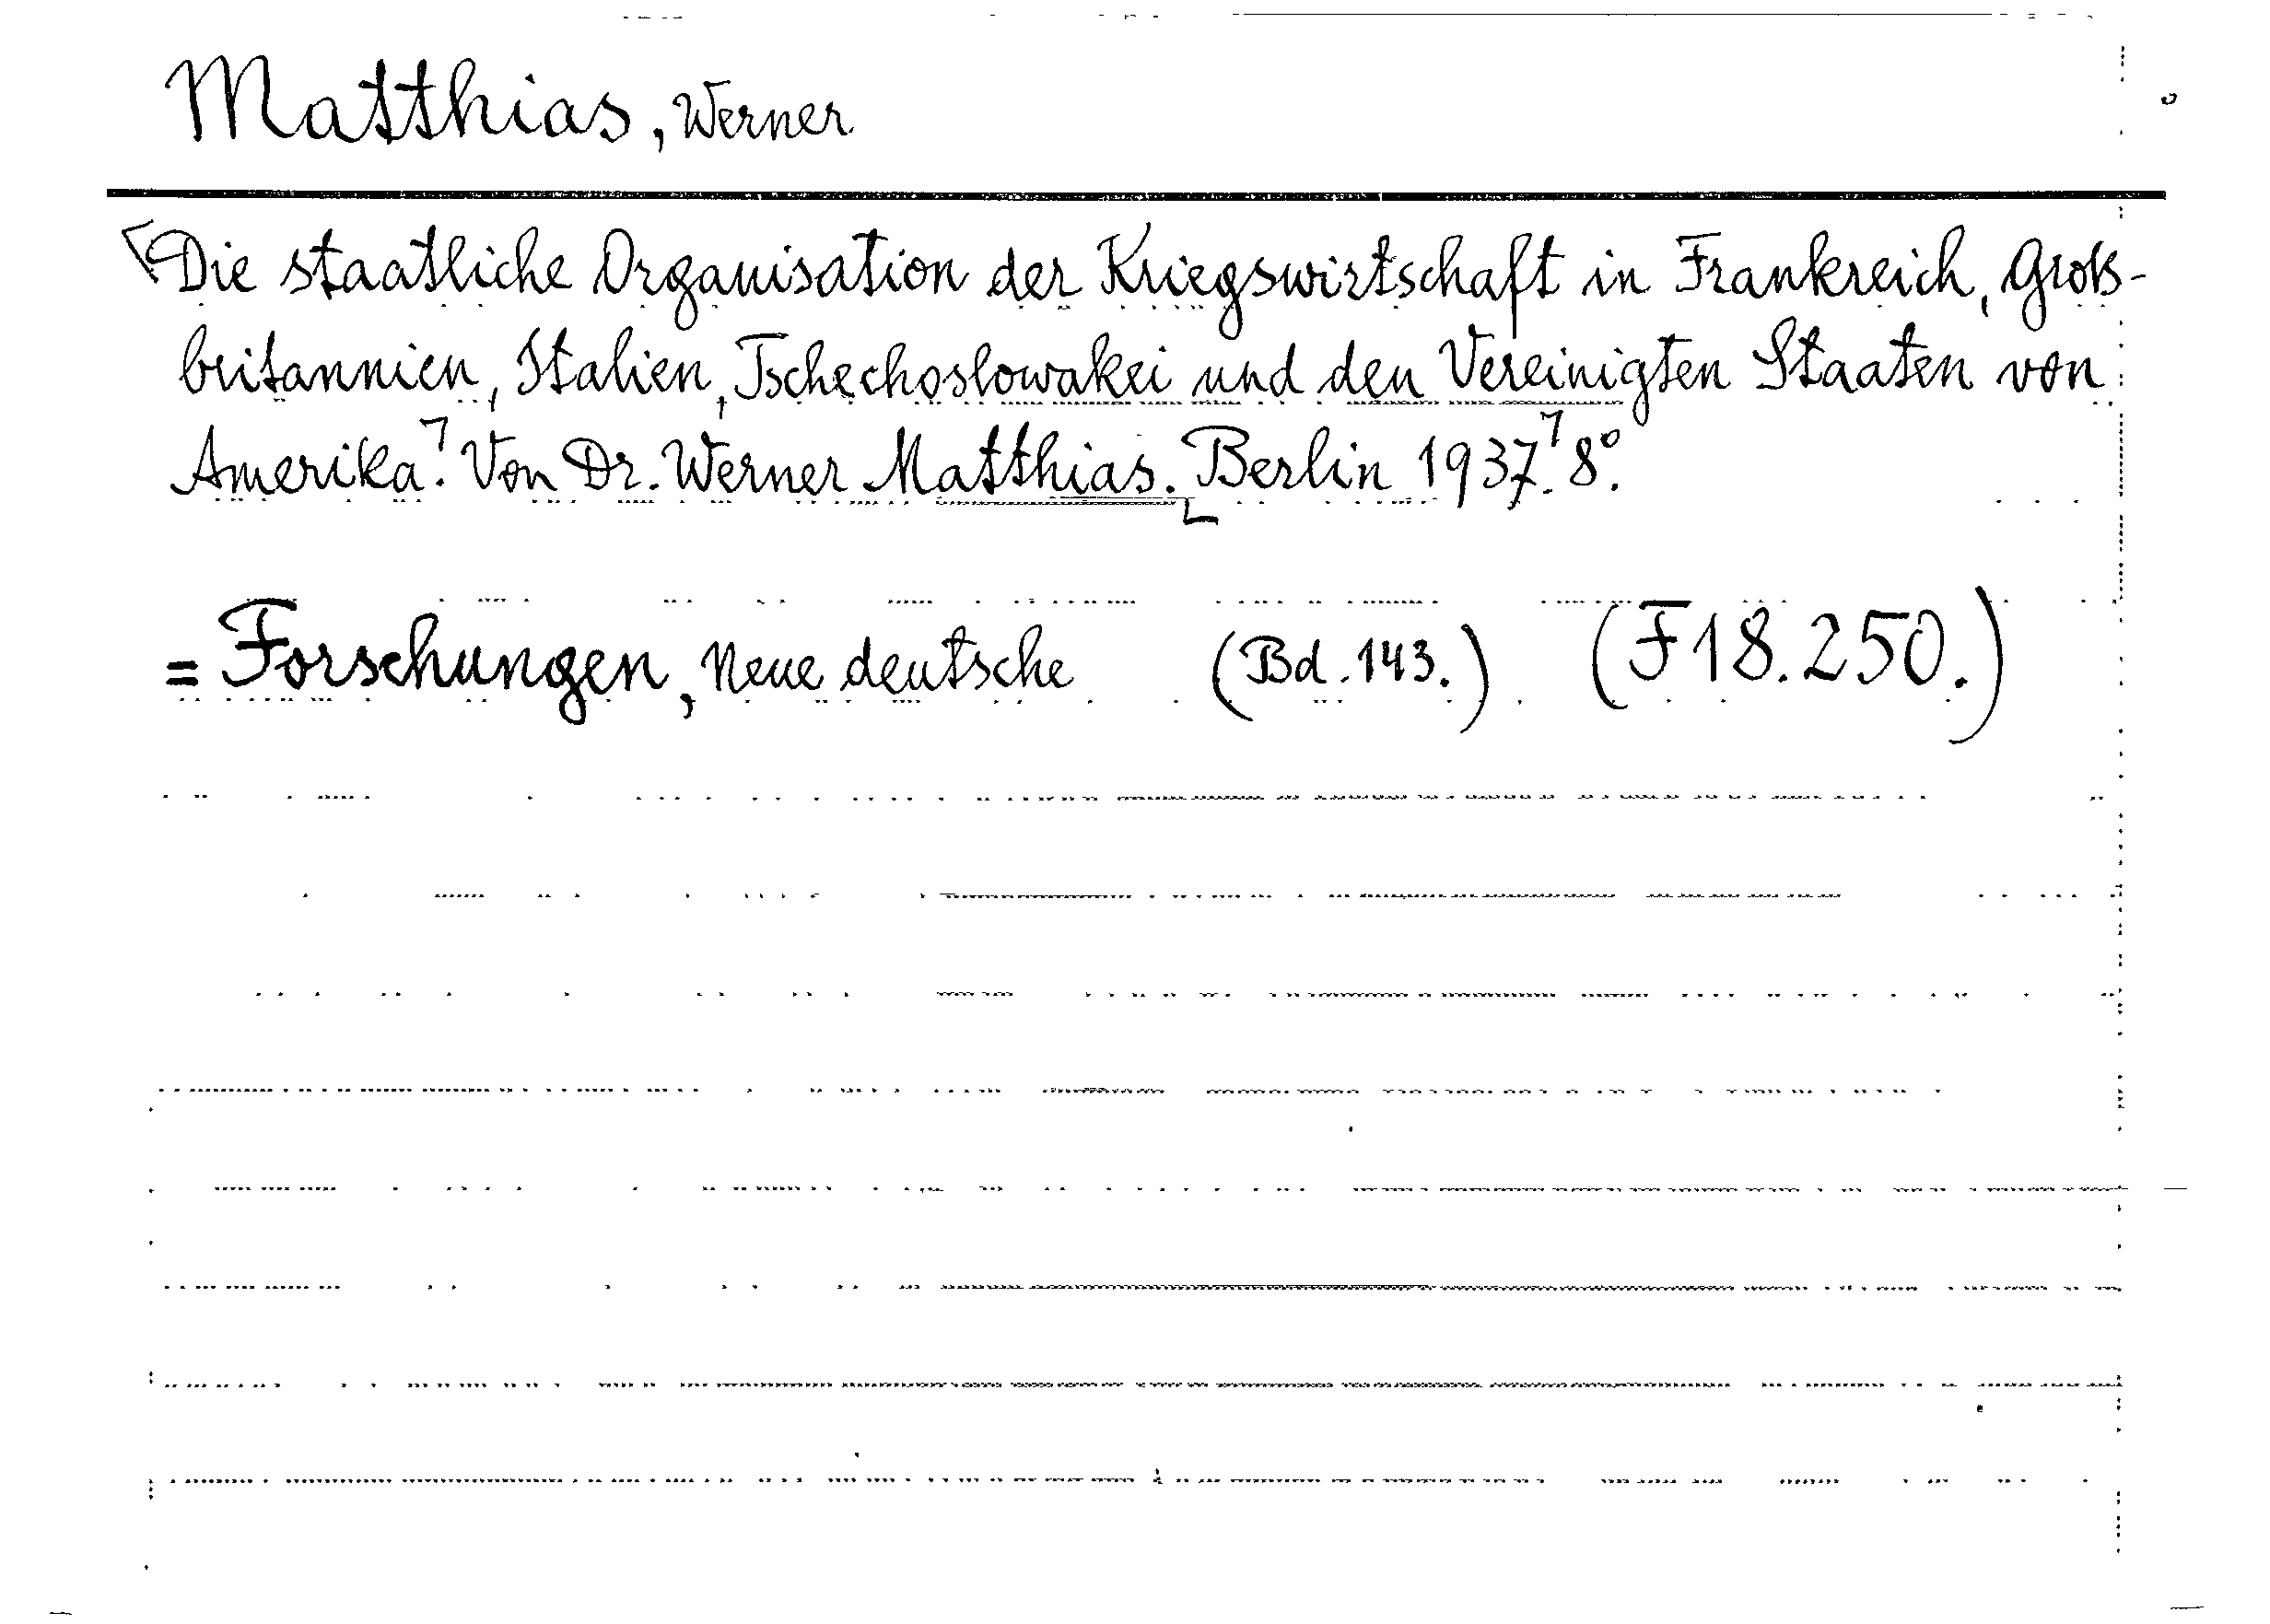 Matthias, Werner
⌈Die staatliche Organisation der Kriegswirtschaft in Frankreich, Groß-
britannien, Italien, Tschechoslowakei und den Vereinigten Staaten von
Amerika⌉. Von Dr. Werner Matthias. ⌊Berlin 1937⌉. 8°.
= Forschungen, Neue deutsche (Bd. 143.) (F 18. 250.)